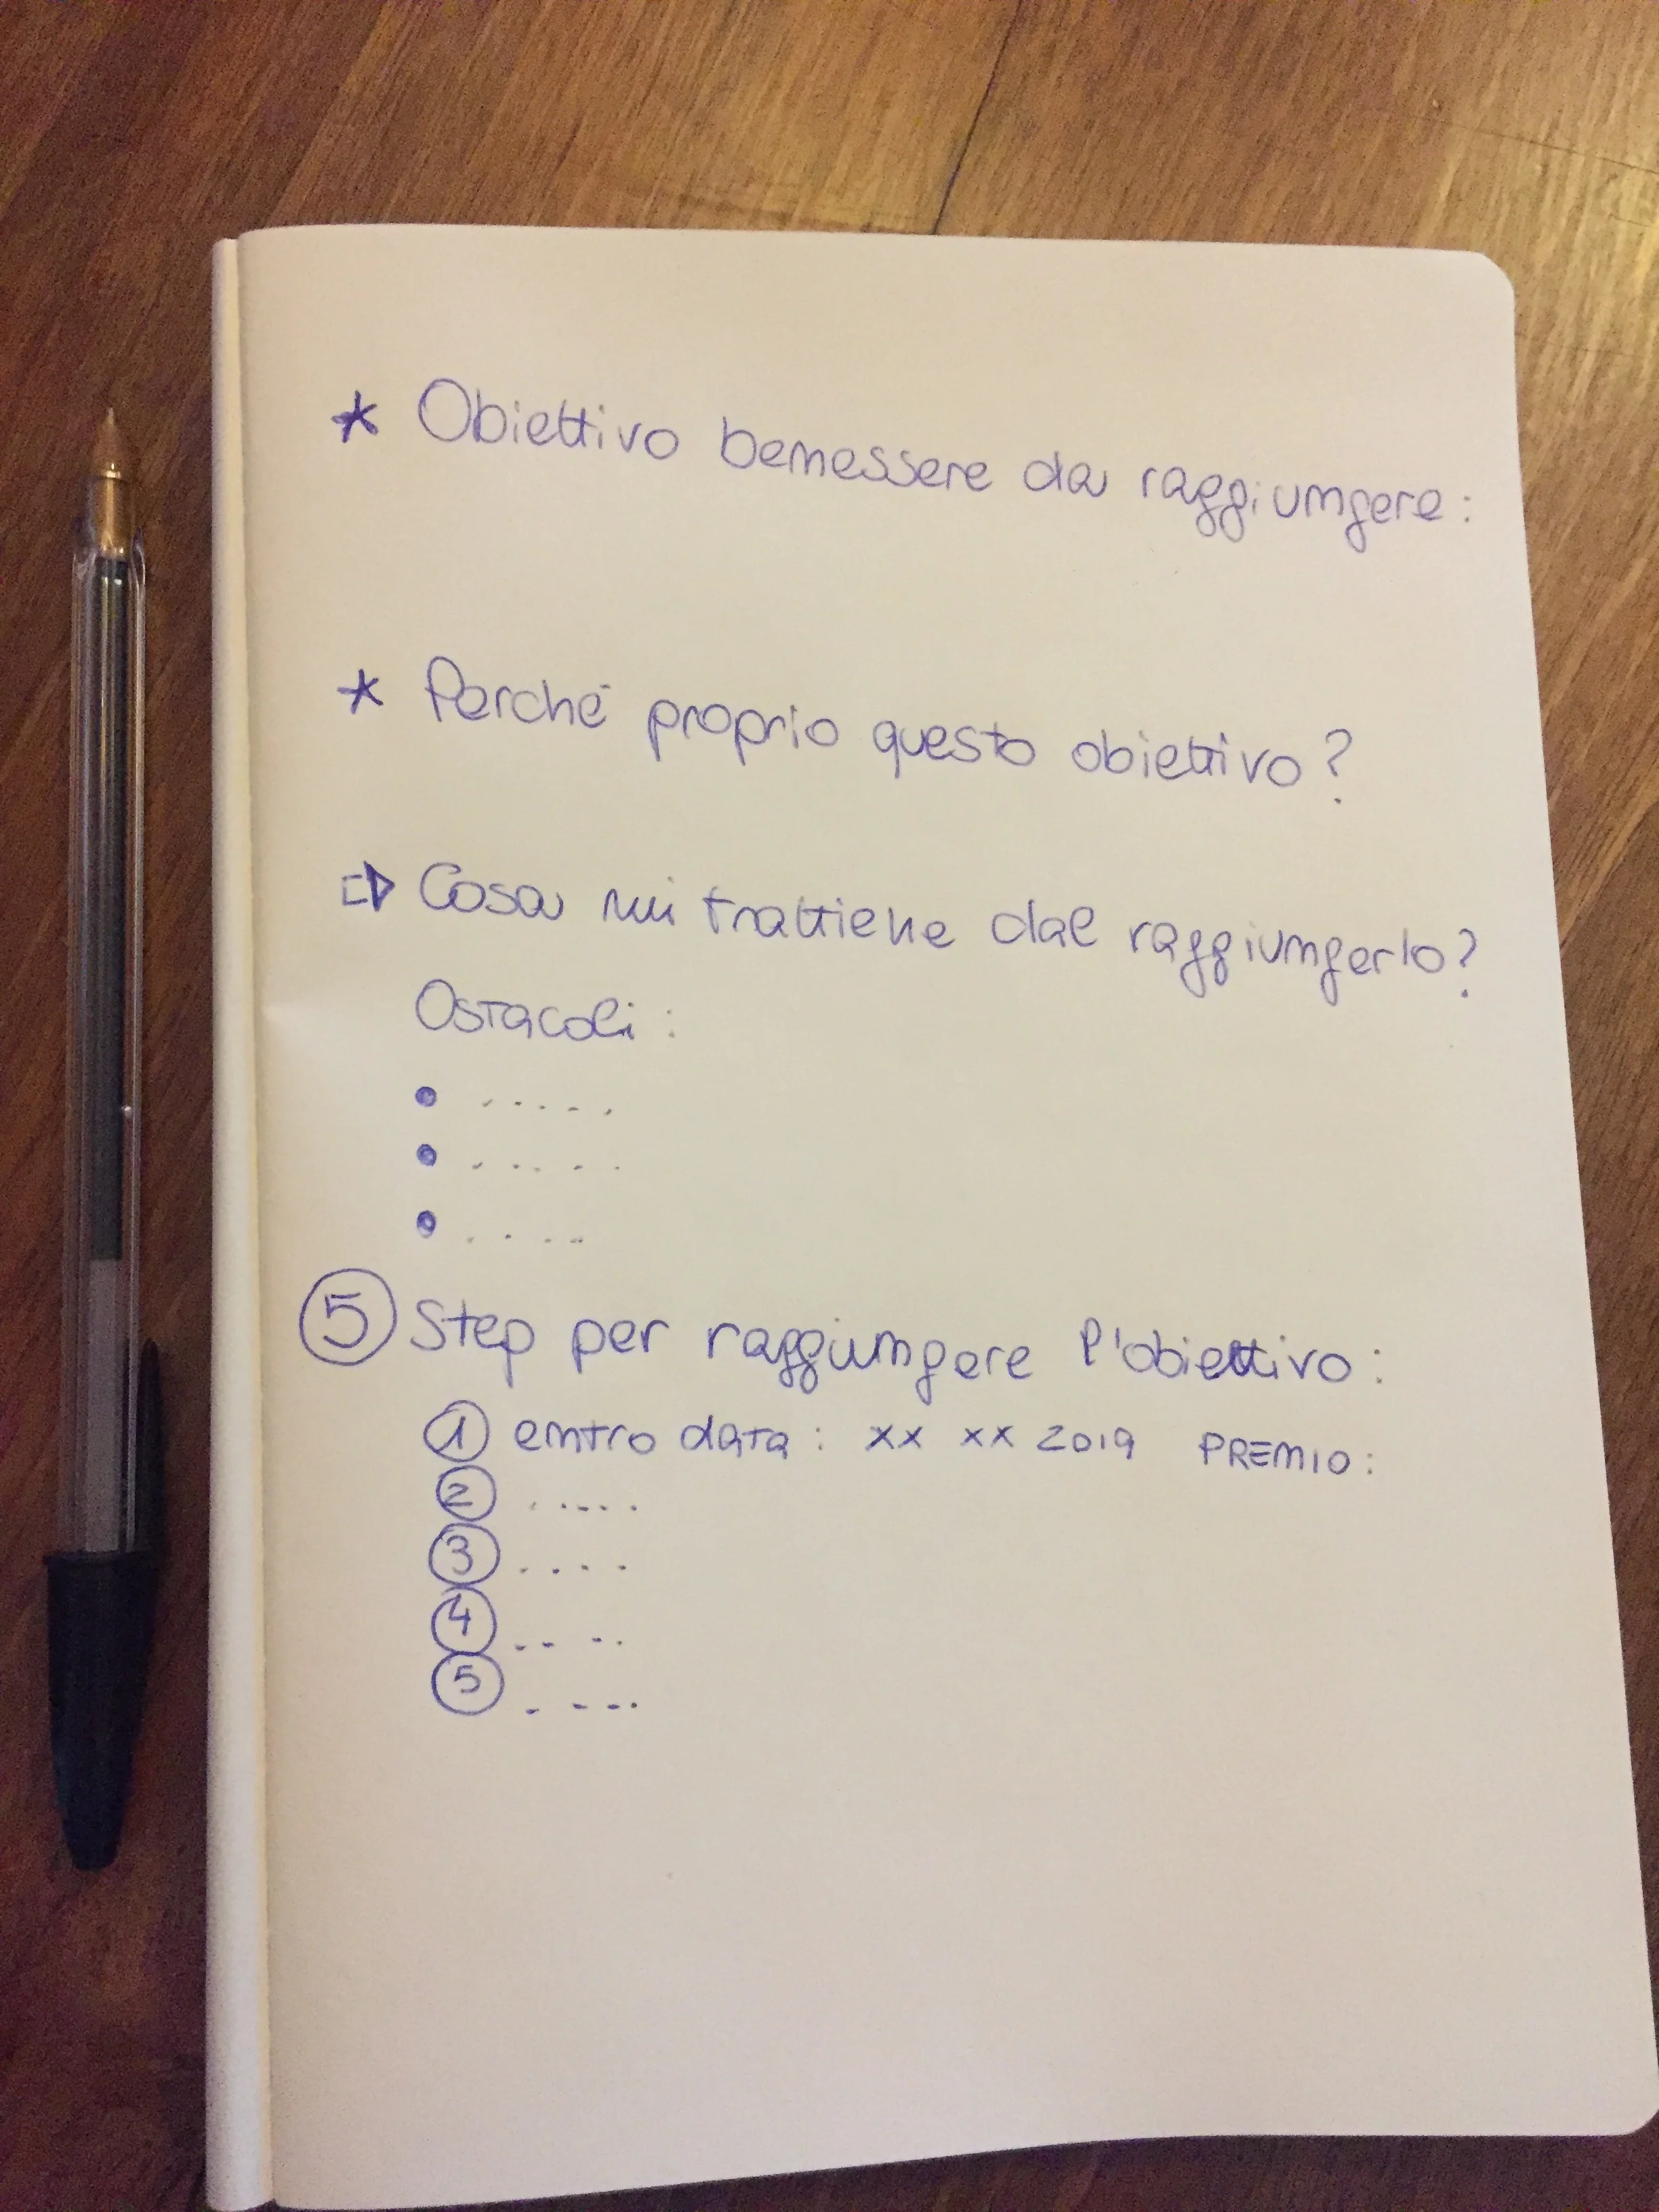 * Obiettivo benessere da raggiungere:
* Perché proprio questo obiettivo?
⇨ Cosa mi trattiene dal raggiungerlo?
Ostacoli:
• .....
• .....
• ....
⑤ Step per raggiungere l'obiettivo:
① entro data: xx xx 2019 PREMIO:
② .....
③ ....
④ ....
⑤ ....